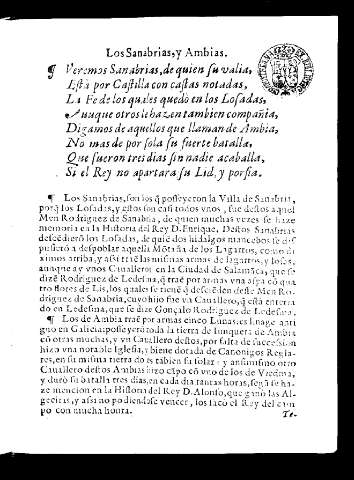 Los Sanabrias, y Ambias.
¶ Veremos Sanabrias, de quien su valia,
Està por Castilla con castas notadas,
La Fe de los quales quedò en los Losadas,
Aunque otros le hazen tambien compañia,
Digamos de aquellos que llaman de Ambia,
No mas de por sola su fuerte batalla,
Que fueron tres dias sin nadie acaballa,
Si el Rey no apartara su Lid, y porfia.
¶ Los Sanabrias, son los q̃ posseyeron la Villa de Sanabria,
porq̃ los Losadas, y estos son casi todos vnos, fue destos aquel
Men Rodriguez de Sanabria, de quien muchas vezes se haze
memoria en la Historia del Rey D. Enrique. Destos Sanabrias
descẽdierõ los Losadas, de quiẽ dos hidalgos mancebos se dis
pusierõ a despoblar aquella Mõtaña de los Lagartos, como di
ximos arriba, y assi traẽ las mismas armas de lagartos, y losas,
aunque ay vnos Caualleros en la Ciudad de Salamãca, que se
dizẽ Rodriguez de Ledesma, q̃ traẽ por armas vna aspa cõ qua
tro flores de Lis, los quales tienẽ q̃ desciẽden deste Men Ro-
driguez de Sanabria, cuyo hijo fue vn Cauallero, q̃ està enterra
do en Ledesma, que se dize Gonçalo Rodriguez de Ledesma.
¶ Los de Ambia traẽ por armas cinco Lunas, es linage anti
guo en Galicia: posseyerõ toda la tierra de Iunquera de Ambia
cõ otras muchas, y vn Cauallero destos, por falta de succession
hizo vna notable Iglesia, y biene dorada de Canonigos Regla-
res, en su misma tierra do està tambien su solar: y assimismo otro
Cauallero destos Ambias hizo cãpo cõ vno de los de Viedma,
y durò su batalla tres dias, en cada dia tantas horas, segũ se ha-
ze mencion en la Historia del Rey D. Alonso, que ganò las Al-
geciras, y assi no pudiendose vencer, los sacò el Rey del cam
po con mucha honra.
Te-